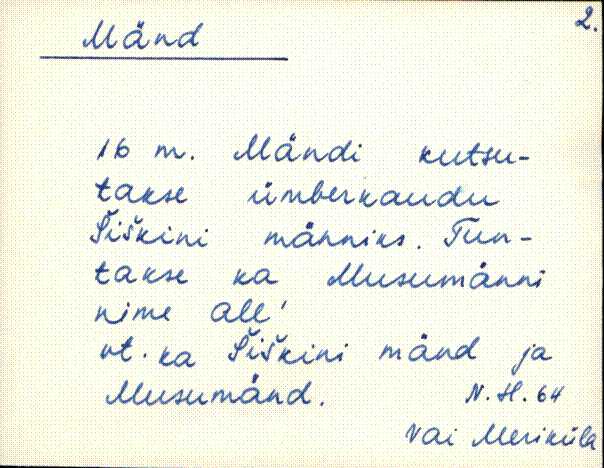 2.
Mänd
16 m. Mändi kutsu-
takse ümberkaudu
Šiškini männiks. Tun-
takse ka Musumänni
nime all!
vt. ka Šiškini mänd ja
Musumänd.
N.H. 64
Vai Meriküla